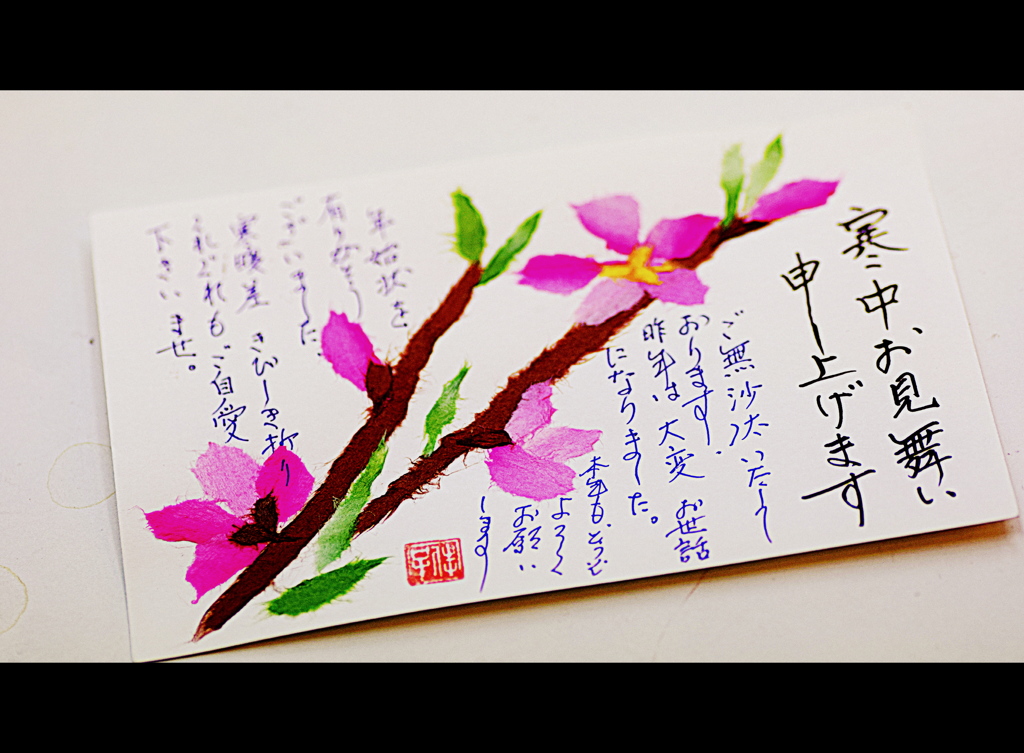 寒中お見舞い
申し上げます
ご無沙汰いたして
おります。
昨年は大変お世話
になりました。
本年も、どうぞ
よろしく
お願い
します
年始状を
有りがとう
ございました。
寒暖差きびしき折り
くれぐれもご自愛
下さいませ。